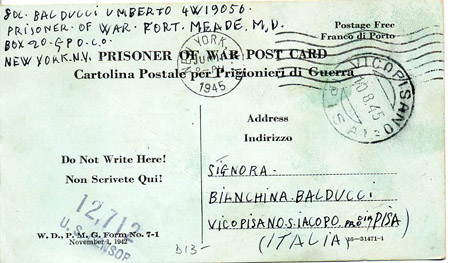 SOL. BALDUCCI UMBERTO 4W19056.
PRISONER OF WAR. FORT. MEADE, M,D.
BOX-20-G.P.O.C.O.
NEW YORK.N.Y.
Postage Free
Franco di Porto
YORK
JUN
1945
PRISONER OF WAR POST CARD
Cartolina Postale per Prigionieri di Guerra
VICOPISANO
10.8.45
PISA
Address
Indirizzo
Do Not Write Here!
Non Scrivete Qui!
SIGNORA.
BIANCHINA. BALDUCCI
VICOPISANO.S.IACOPO. PISA
(ITALIA)
12,712
U.S. CENSOR
W. D., P. M. G. Form No. 7-1
November 1, 1942
D13-
16-31471-1